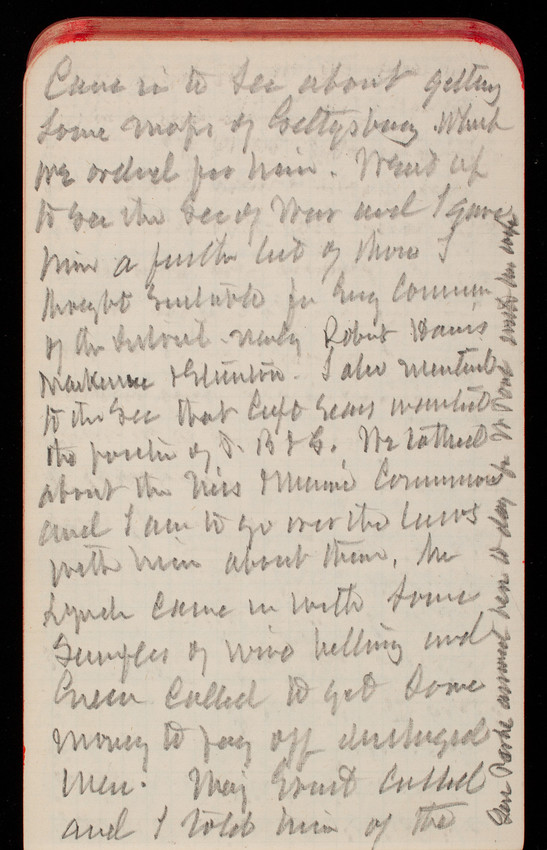 Came in to see about getting
some maps of Gettysburg which
we ordered for him. Went up
to see the Sec of War and I gave
him a further list of those I
thought suitable for Eng Commr
of the District - namely Robert Davis
Mackenzie &
I also mentioned
to the Sec that Capt Sears wanted
the position of D. B & L. We talked
about the Miss & Commission
and I am to go over the laws
with him about them. Mr
Lynch came in with some
samples of wire netting and
Green called to get some
money to pay off discharged
men. Maj Ernst called
and I told him of the
Gen Parke arrived here to day with his wife